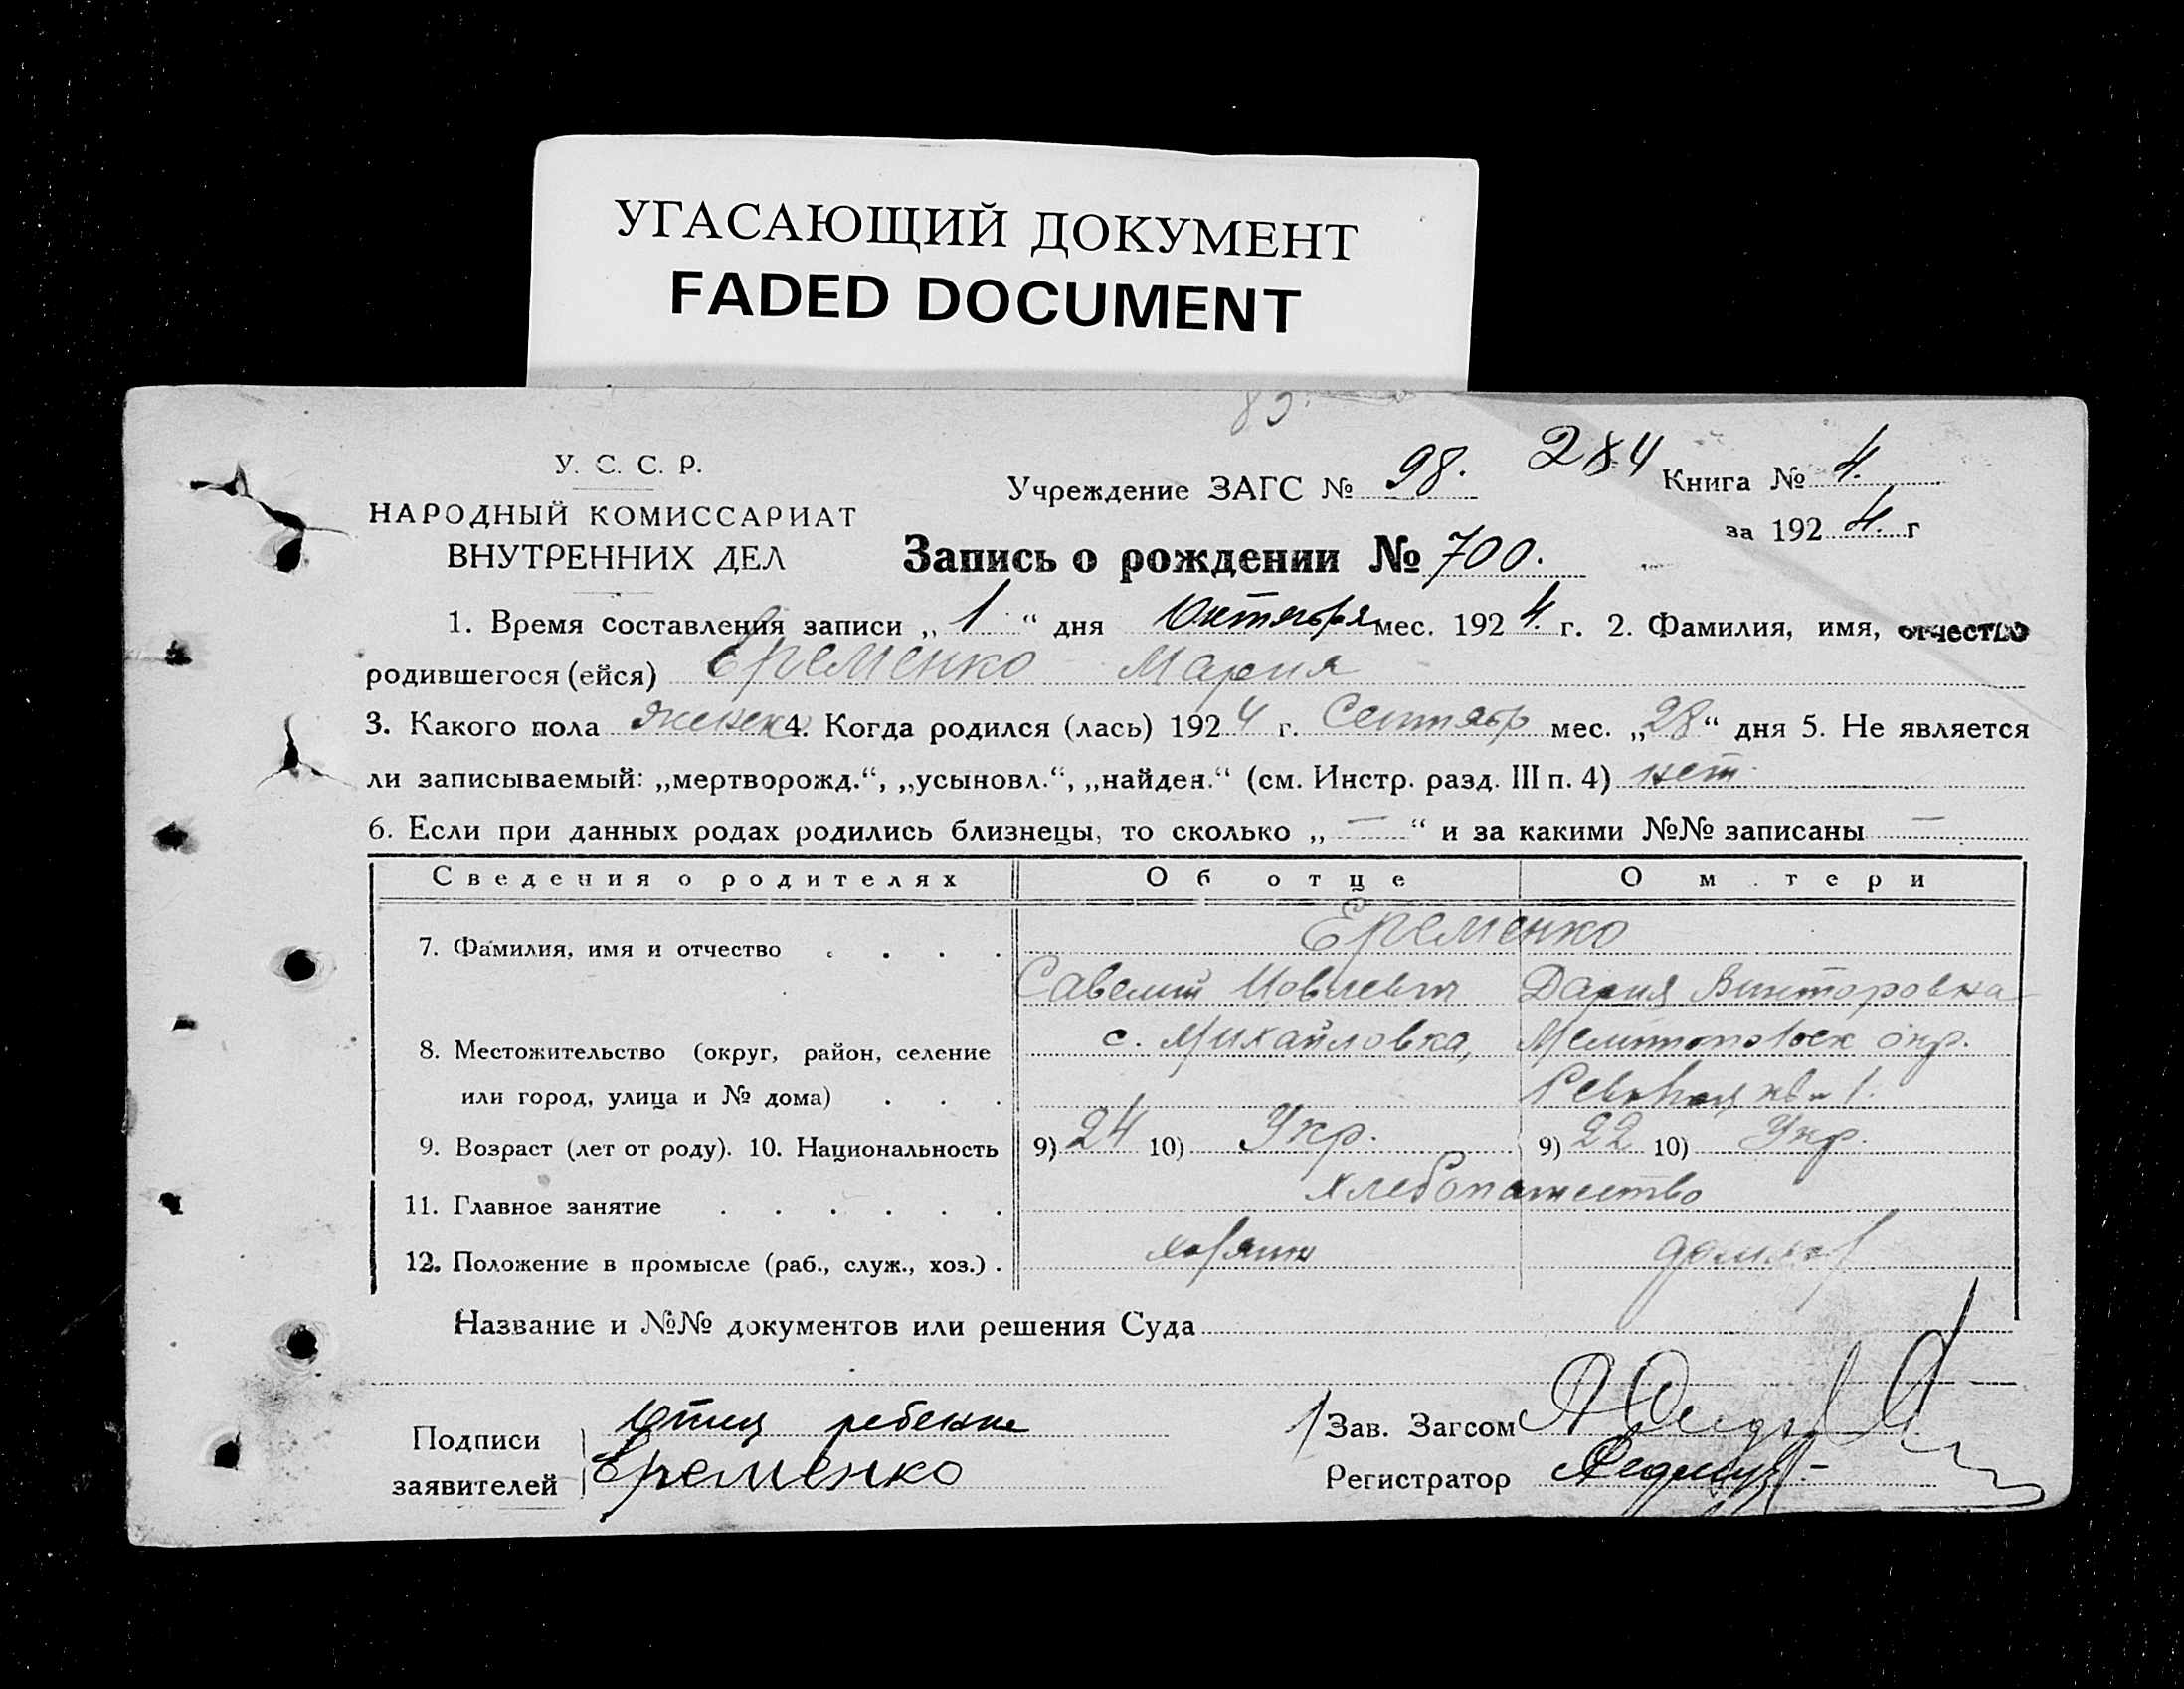 УГАСАЮЩИЙ ДОКУМЕНТ
FADED DOCUMENT
У. С. С. Р.
НАРОДНЫЙ КОМИССАРИАТ
ВНУТРЕННИХ ДЕЛ
Учреждение ЗАГС № 98. 284 Книга № 4.
за 1924. г
Запись о рождении № 700.
1. Время составления записи „1“ дня Октября мес. 1924. г. 2. Фамилия, имя, отчество
родившегося (ейся) Еременко Мария
3. Какого пола женск 4. Когда родился (лась) 1924 г. Сентябр мес. „28“ дня 5. Не является
ли записываемый: „мертворожд.“, „усыновл.“, „найден.“ (см. Инстр. разд. III п. 4) нет
6. Если при данных родах родились близнецы, то сколько „—“ и за какими №№ записаны —
Сведения о родителях Об отце О м тери
7. Фамилия, имя и отчество . . . . Еременко
Савелий Иовлевич Дария Викторовна
8. Местожительство (округ, район, селение с. Михайловка, Мелитопольск окр.
или город, улица и № дома) . . .
9. Возраст (лет от роду). 10. Национальность 9) 24 10) Укр. 9) 22 10) Укр.
11. Главное занятие . . . . . . хлебопашество
12. Положение в промысле (раб., служ., хоз.) .
Название и №№ документов или решения Суда
Подписи Отец ребенка
заявителей Еременко
Зав. Загсом
Регистратор